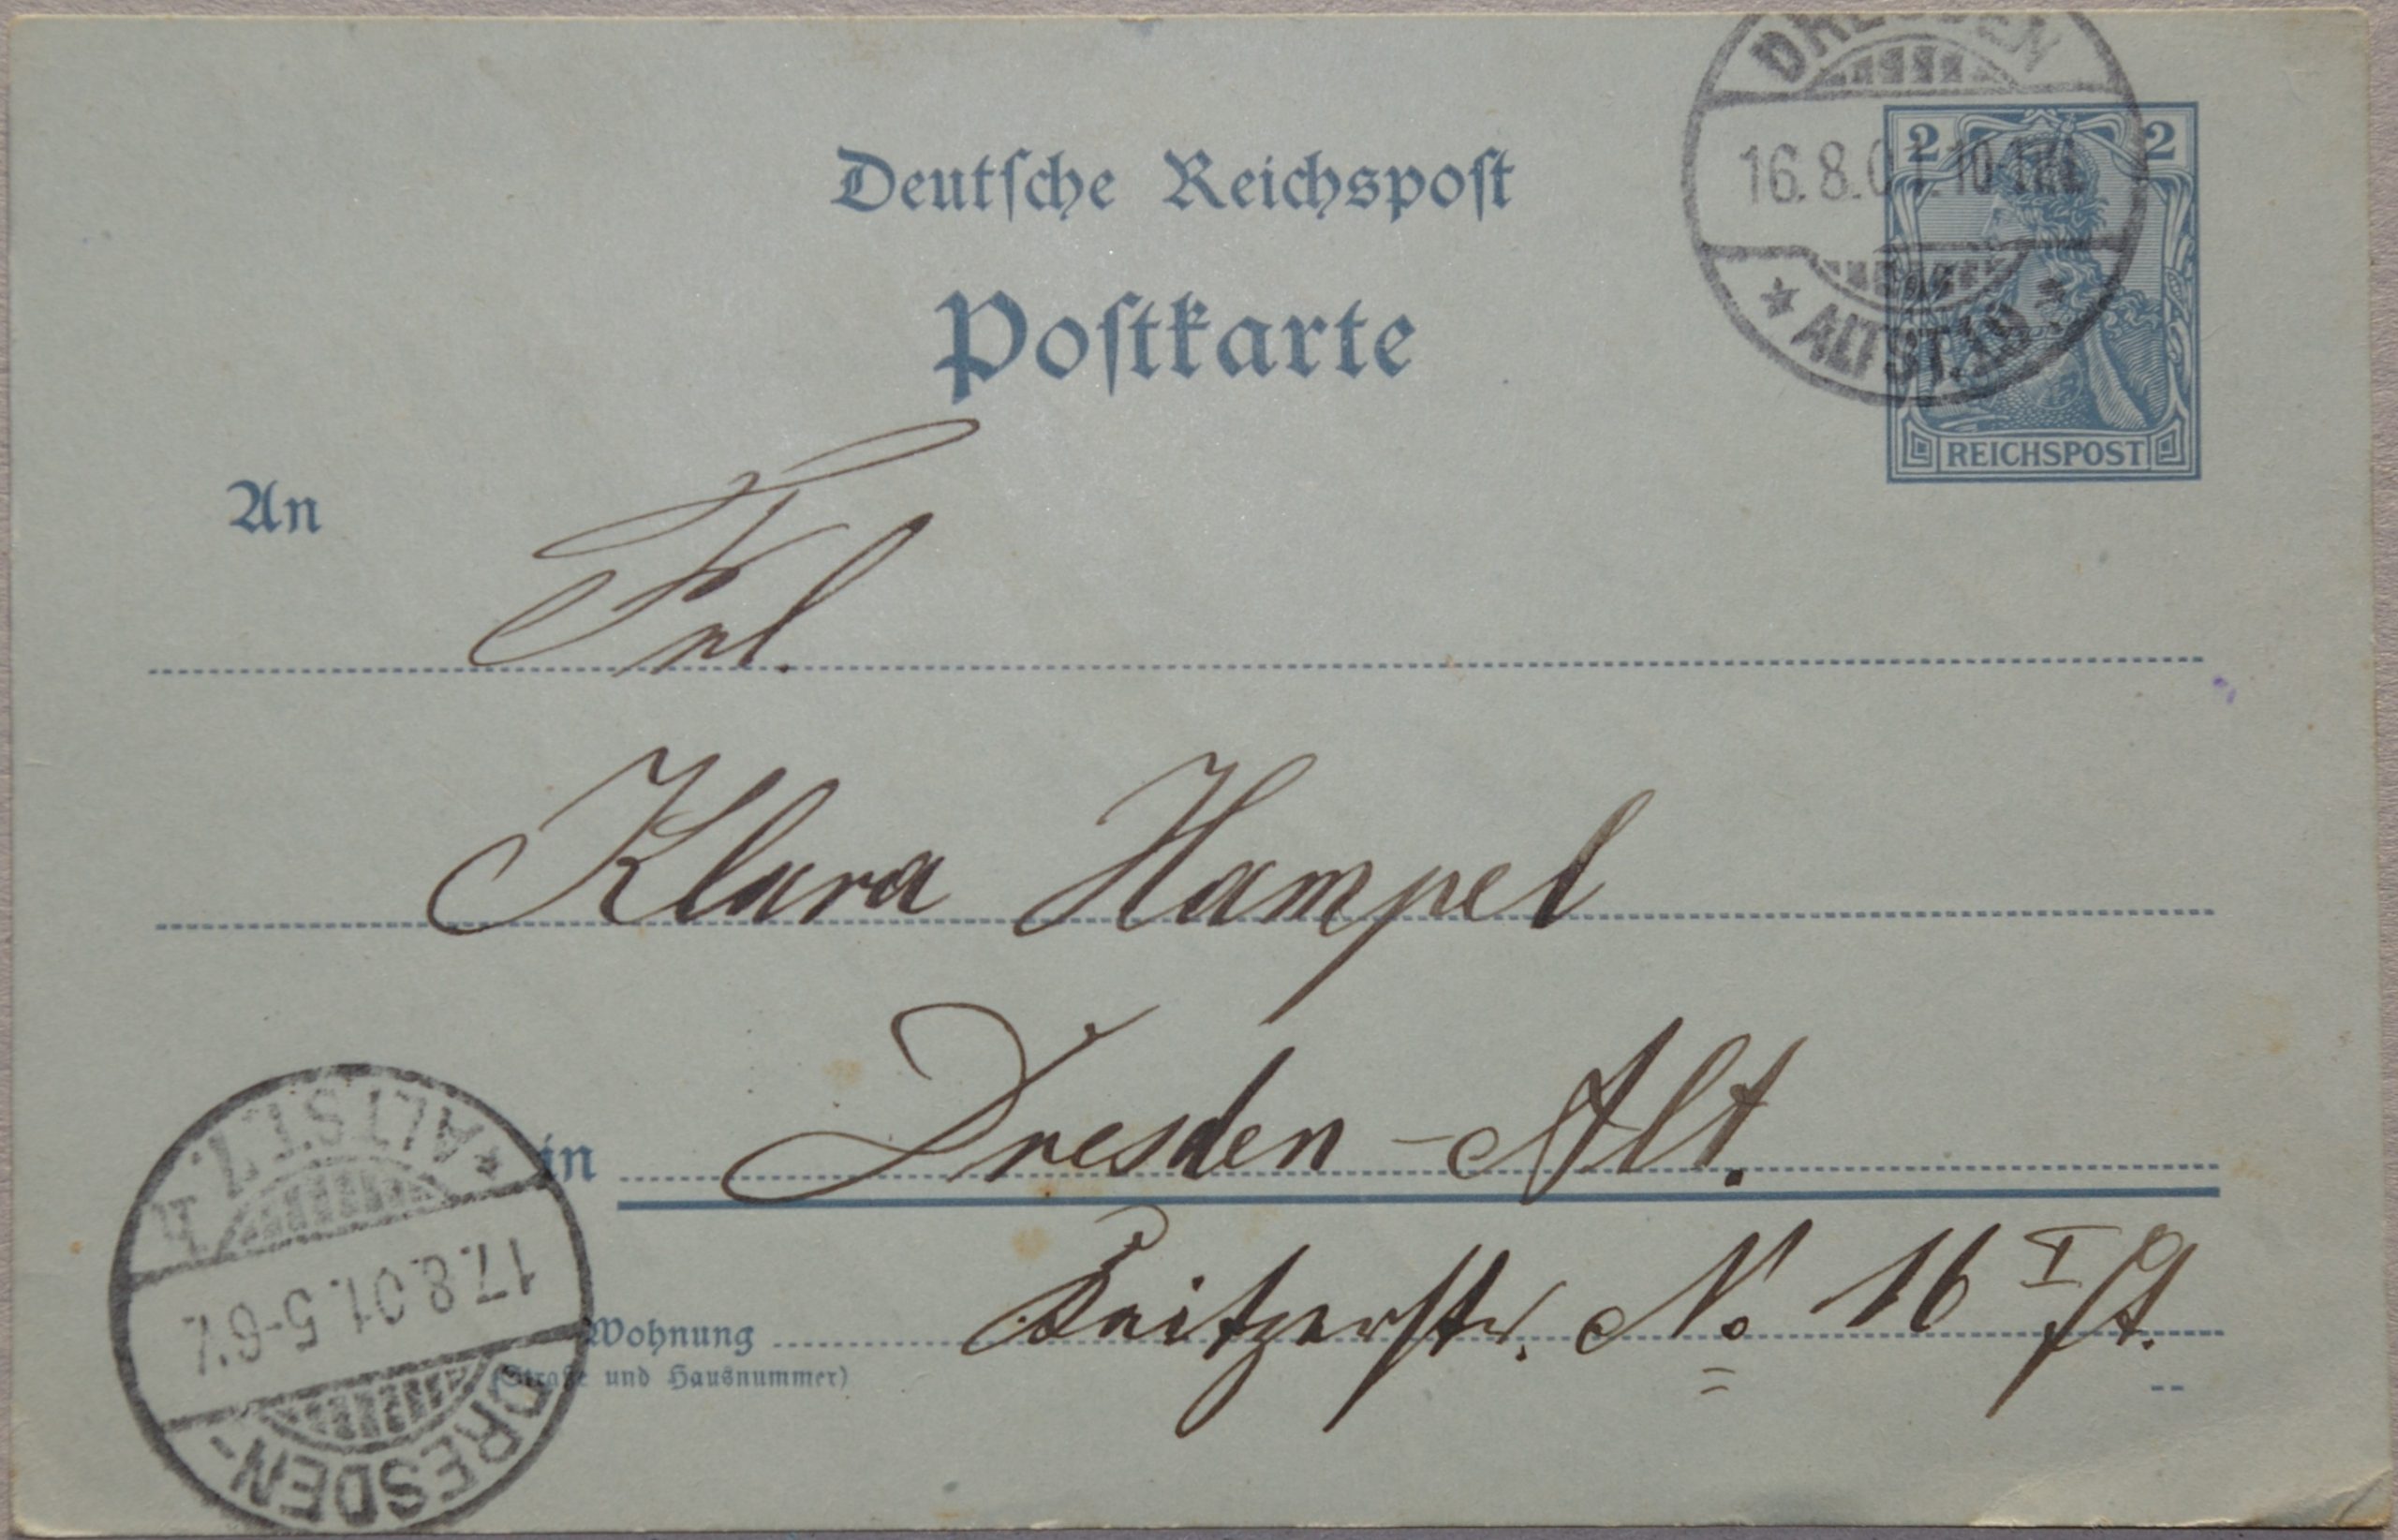 DRESDEN
16.8.01.10-11V.
* ALTST.
2 2
REICHSPOST
Deutsche Reichspost
Postkarte
An
Frl.
Klara Hampel
in Dresden-Alt.
Wohnung Zeitzerstr. No 16 I
(Straße und Hausnummer)
* ALTST. 7.
17.8.01.5-6V.
DRESDEN-